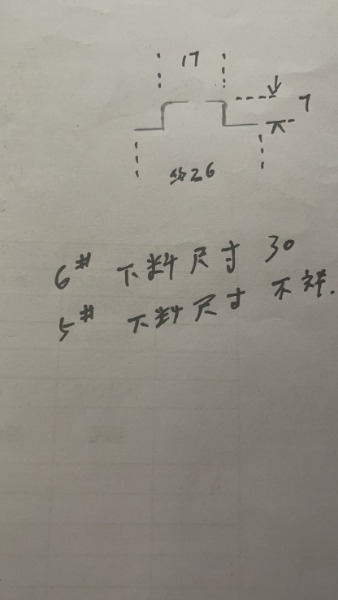 17
7
约26
6# 下料尺寸 30
5# 下料尺寸 不详.